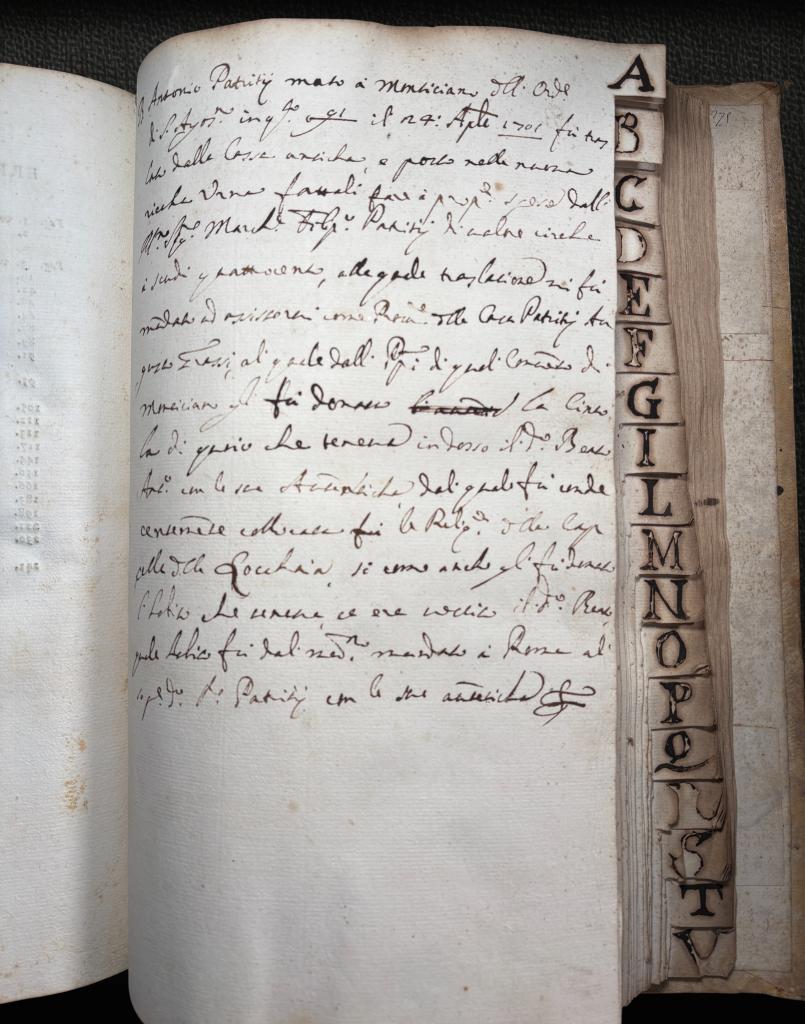 B. Antonio Patritij morto à Monticiano dell' Orde
di S. Agos.no in q.to il 24: Aple 1701 fù tras
lato dalla Cassa antica, e posto nella nuova
ricca Urna fattali fare à prop.e spese dall'
Ill.mo Sig.re March.e Filip.o Patritij di valore circha
à scudi quattrocento, alla quale traslatione vi fù
mandato ad assistervi come della Casa Patritij Au
gusto Frassi, al quale dalli di quel Convento di
Monticiano gli fù donato la Cinto
la di quoio che teneva indosso il d.o Beato
Ant.o con le sue Autentiche, dal quale fù conde
centemente collocata frà le Reliq.e della Cap
pella della Rocchaia, si come anche gli fù donato
l'Abito che teneva, et era vestito il d.o Beato
quale Abito fù dal med.mo mandato à Roma al
Patritij con le sue autentiche
A
B
C
D
E
F
G
I
L
M
N
O
P
Q
R
S
T
V